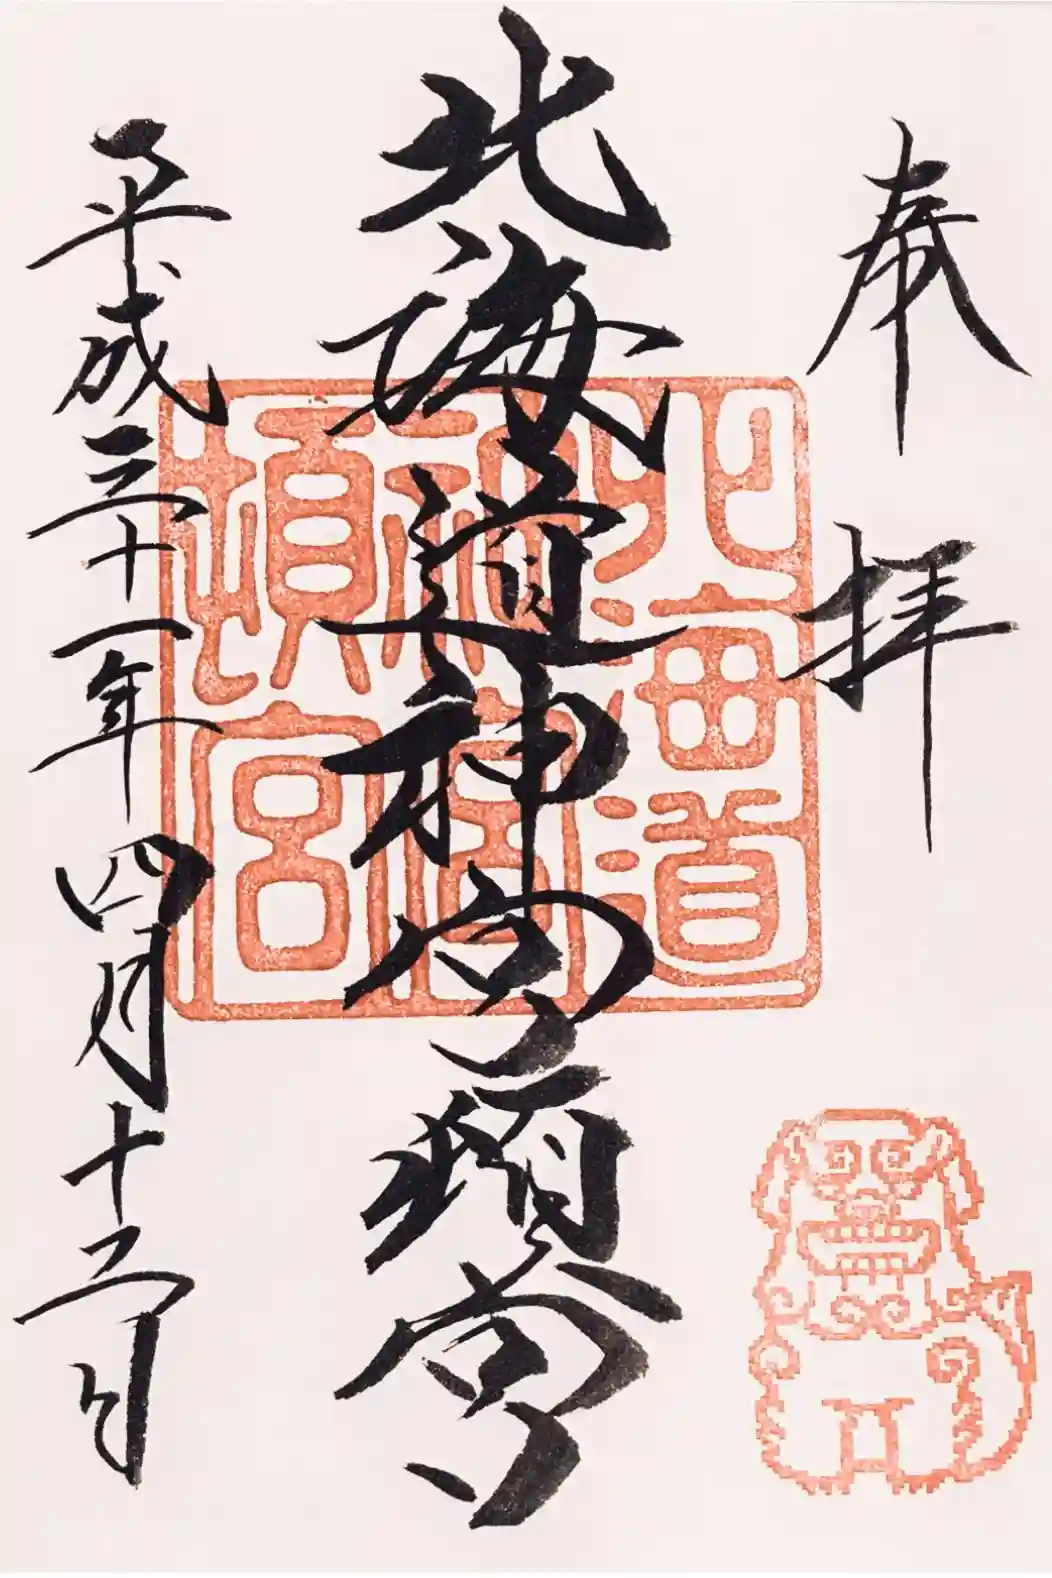 奉拝
北海道神宮頓宮
平成三十一年四月十二日
北海道神宮頓宮